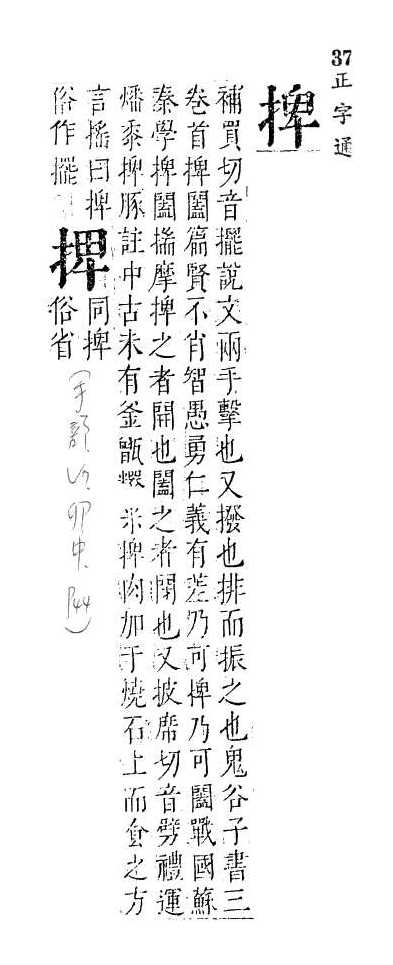 37正字通
捭
補買切音擺說文兩手擊也又撥也排而振之也鬼谷子書三
卷首捭闔篇賢不肖智愚勇仁義有差乃可捭乃可闔戰國蘇
秦學捭闔揣摩捭之者開也闔之者閉也又披席切音劈禮運
燔黍捭豚註中古未有釜甑 米捭肉加于燒石上而食之方
言搖曰捭 同捭
俗作擺 捭 俗省
(手部 卯中 P44)